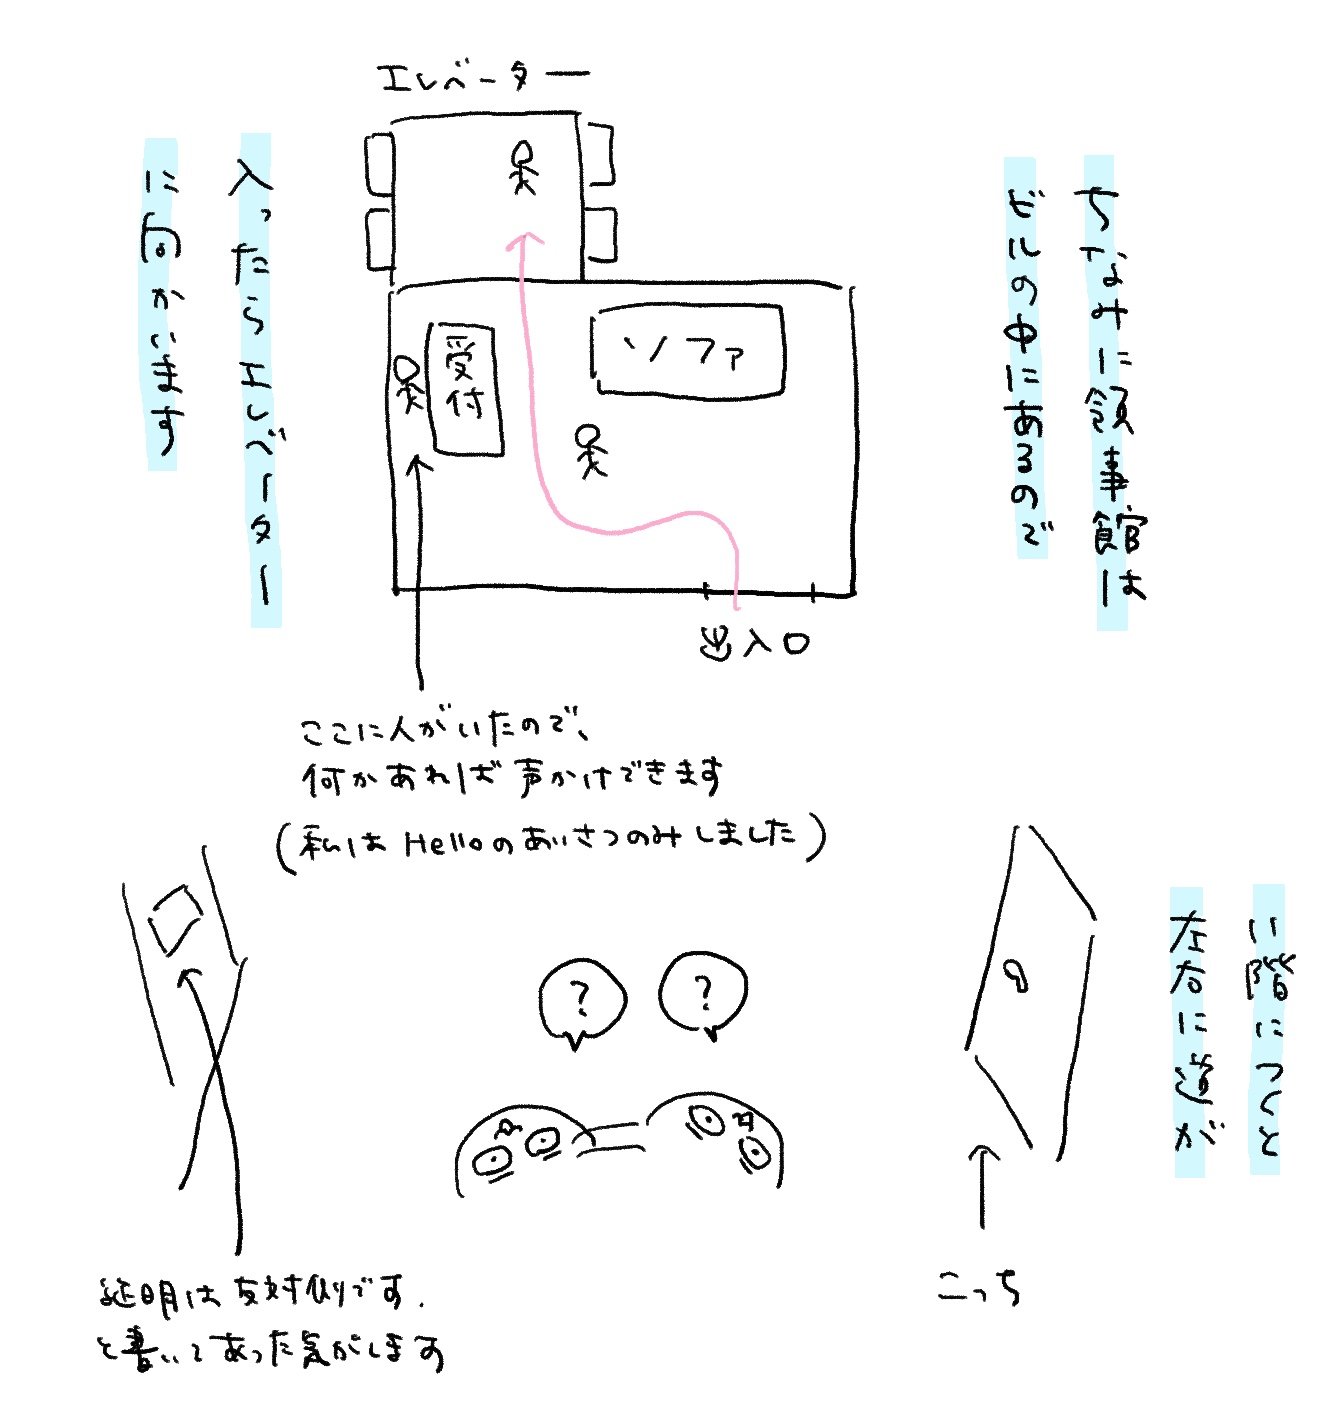 ちなみに領事館は
ビルの中にあるので
エレベーター
受付
ソファ
出入口
入ったらエレベーター
に向かいます
ここに人がいたので、
何かあれば声かけできます
(私はHelloのあいさつのみしました)
い階につくと
左右に道が
?
?
こっち
証明は反対側です.
と書いてあった気がします